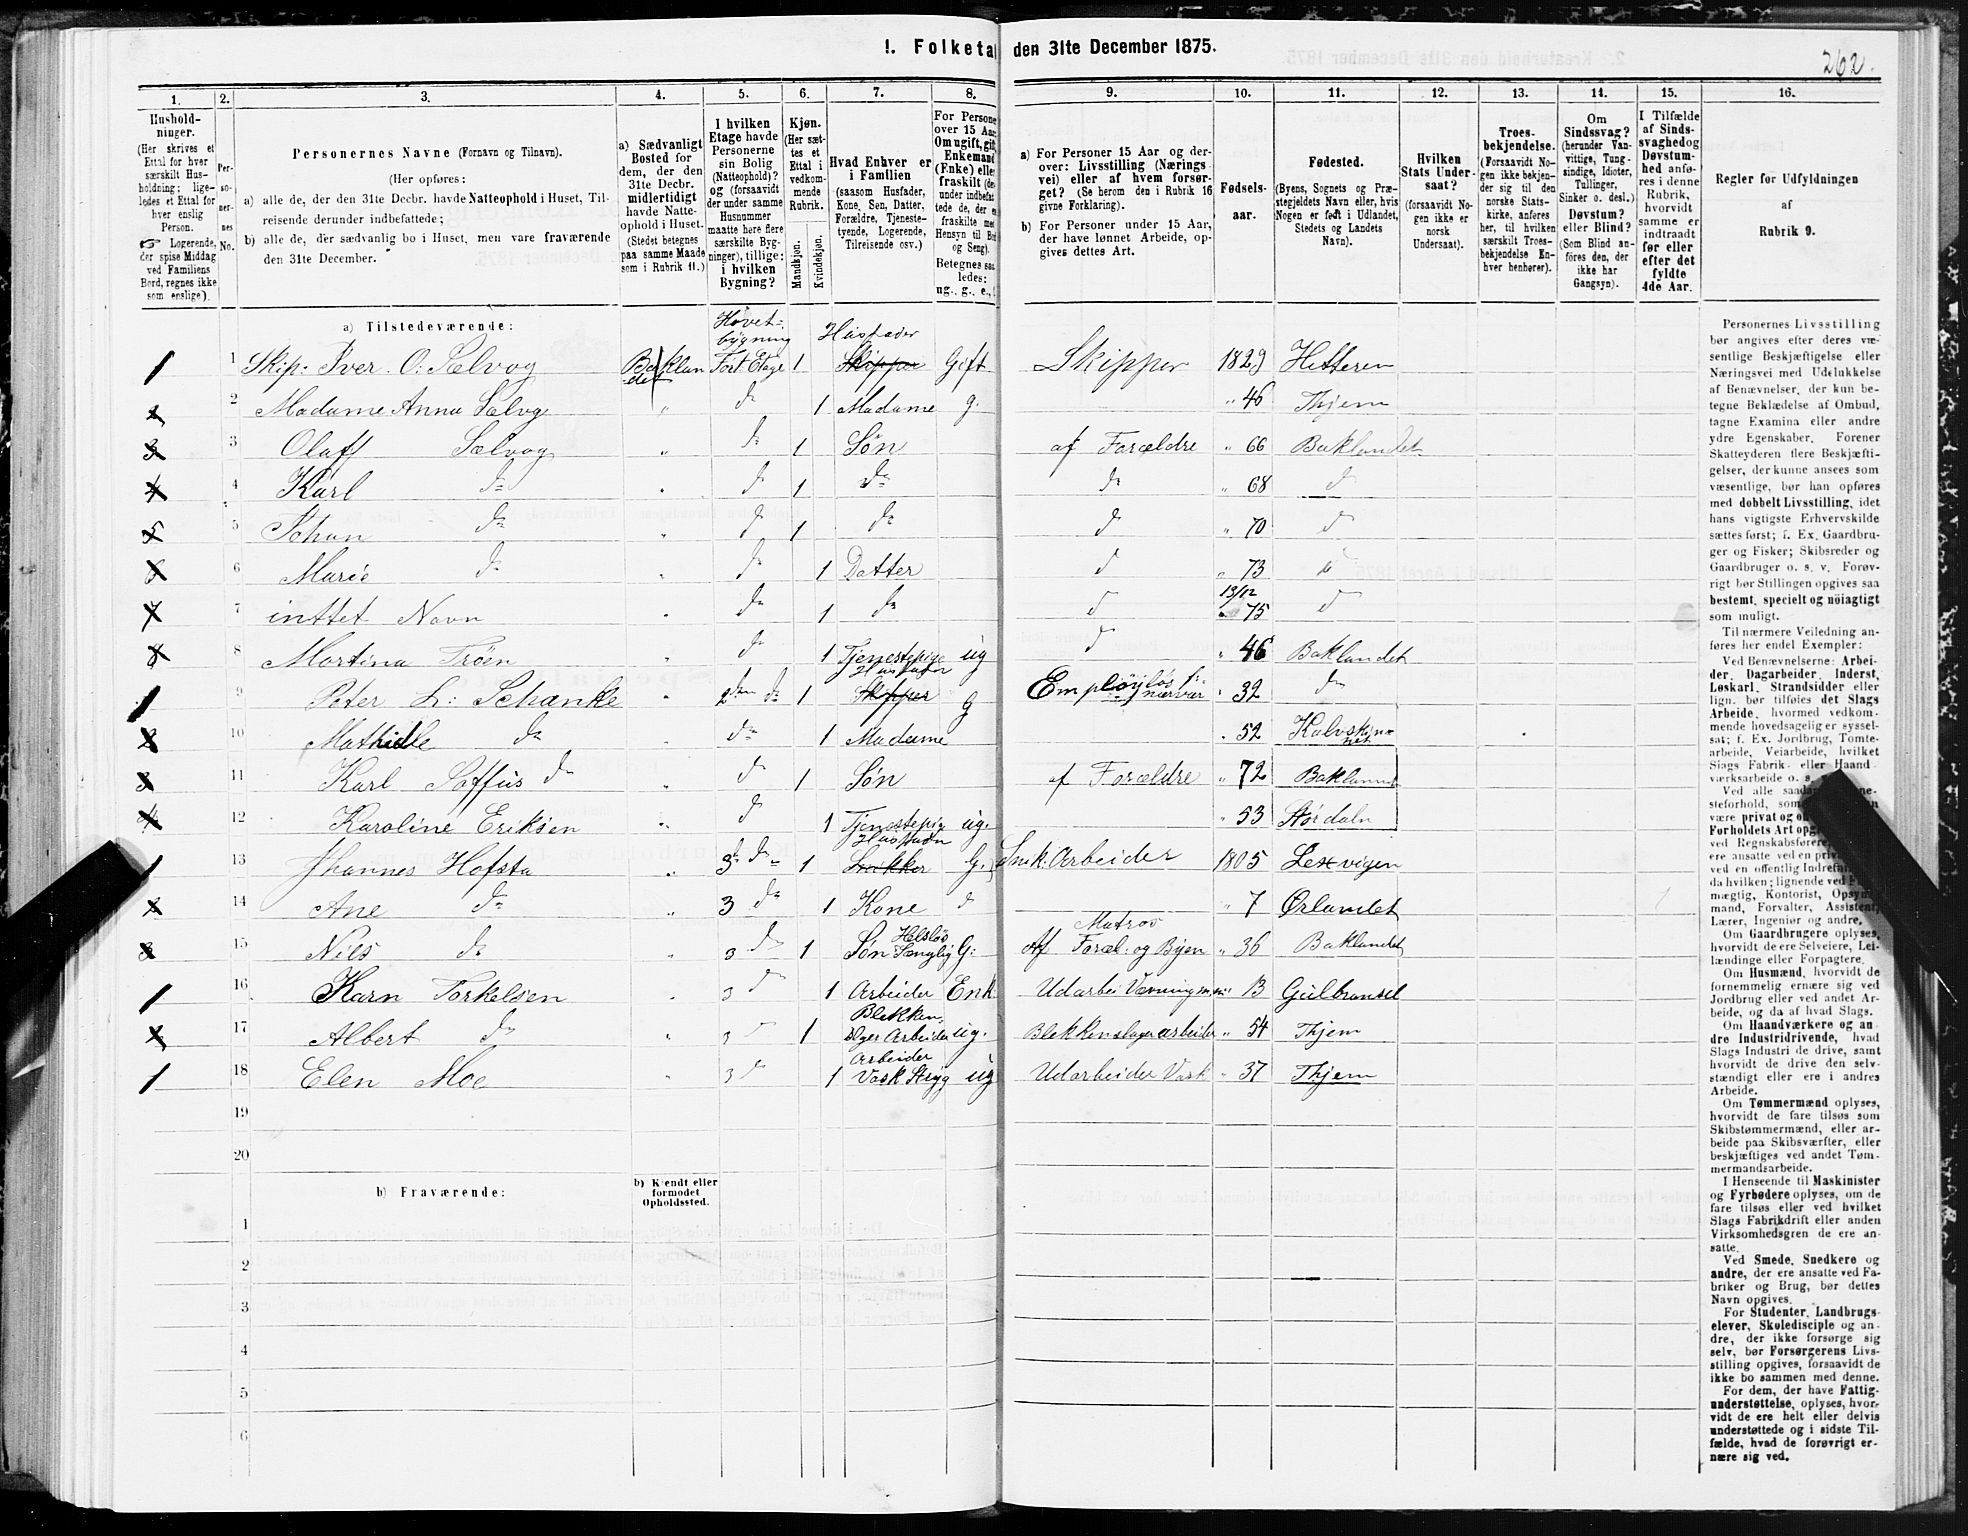 1. Folketal den 31te December 1875.
262.
1. 2. 3. 4. 5. 6. 7. 8. 9. 10. 11. 12. 13. 14. 15. 16.
Hushold-
ninger.
(Her skrives et
Ettal for hver
særskilt Hus-
holdning; lige-
ledes et Ettal for
hver enslig
Person.
☞ Logerende,
der spise Middag
ved Familiens
Bord, regnes ikke
som enslige).
Per-
so-
ner-
nes
No.
Personernes Navne (Fornavn og Tilnavn).
(Her opføres:
a) alle de, der den 31te Decbr. havde Natteophold i Huset, Til-
reisende derunder indbefattede;
b) alle de, der sædvanlig bo i Huset, men vare fraværende
den 31te December.
a) Sædvanligt
Bosted for
dem, der den
31te Decbr.
midlertidigt
havde Natte-
ophold i Huset.
(Stedet betegnes
paa samme Maade
som i Rubrik 11.)
I hvilken
Etage havde
Personerne
sin Bolig
(Natteophold)?
og (forsaavidt
der under samme
Husnummer
maatte høre flere
særskilte Byg-
ninger), tillige:
i hvilken
Bygning?
Kjøn.
(Her sæt-
tes et
Ettal i
vedkom-
mende
Rubrik.
Mandkjøn.
Kvindekjøn.
Hvad Enhver er
i Familien
(saasom Husfader,
Kone, Søn, Datter,
Forældre, Tjeneste-
tyende, Logerende,
Tilreisende osv.)
For Persone
over 15 Aar
Om ugift, gift
Enkemand
(Enke) elle
fraskilt (de
under indbefat
tede de, der e
fraskilte med
Hensyn til Bo
og Seng).
Betegnes saa
ledes:
ug., g., e.,
a) For Personer 15 Aar og der-
over: Livsstilling (Nærings
vei) eller af hvem forsør-
get? (Se herom den i Rubrik 16
givne Forklaring).
b) For Personer under 15 Aar,
der have lønnet Arbeide, op-
gives dettes Art.
Fødsels-
aar.
Fødested.
(Byens, Sognets og Præ-
stegjeldets Navn eller, hvis
Nogen er født i Udlandet,
Stedets og Landets
Navn).
Hvilken
Stats Under-
saat?
(forsaavidt No-
gen ikke er
norsk
Undersaat).
Troes-
bekjendelse.
(Forsaavidt No-
gen ikke bekjen-
der sig til den
norske Stats-
kirke, anføres
her, til hvilken
særskilt Troes-
bekjendelse En-
hver henhører).
Om
Sindssvag?
(herunder Van-
vittige, Tung-
sindige, Idioter,
Tullinger,
Sinker o. desl.)
Døvstum?
eller Blind?
(Som Blind an-
føres den, der
ikke har
Gangsyn).
I Tilfælde
af Sinds-
svaghed og
Døvstum-
hed anfø-
res i denne
Rubrik,
hvorvidt
samme er
indtraadt
før eller
efter det
fyldte
4de Aar.
Regler for Udfyldningen
af
Rubrik 9.
a) Tilstedeværende:
Hovet-
bygning
Husfader
1 1 Skip: Iver O: Sælvog Baklan det Først Etage 1 Skipper Gift Skipper 1829 Hitteren
2 2 Madame Anna Sælvg " do 1 Madame g. " 46 Thjem
3 3 Olaff Sælvog " do 1 Søn af Forældre " 66 Baklandet
4 4 Karl do " d 1 do do " 68 d
5 5 Johan do " d 1 do d " 70 d
6 6 Marie do " do 1 Datter d " 73 d
13/12
7 7 inttet Navn " do 1 do d " 75 d
8 8 Martina Trøen " do 1 Tjenestepige ug d " 46 Baklandet
Husfader
1 9 Peter L: Schanke " 2den do 1 Skipper G " 32 do
2 10 Mathilde do " do 1 Madame " 52 Kalvskin-
net
3 11 Karl Soffus do " do 1 Søn af Forældre " 72 Baklannd
4 12 Karoline Eriksen " d 1 Tjenestepig ug. " 53 Størdaln
1 13 Jhannes Hofsta " 3d do 1 Snikker G. Snik: Arbeider 1805 Lexvigen
2 14 Ane do " 3 do 1 Kone d " 7 Ørlandet
Helsløs
Matros
3 15 Nils do " 3 d 1 Søn Sænglig G: Af Foræl: og Byen " 36 Baklandet
1 16 Karn Torkelsen " 3 d 1 Arbeider Enk " 13
Blekken
2 17 Albert do " 3 d 1 slger Arbeider ug. Blekkenslagerarbeider " 54 Thjem
Arbeider
1 18 Elen Moe " 3 d 1 Vask Stryg ug Udarbeider Vask " 37 Thjem
19
20
b) Fraværende:
b) Kjendt eller
formodet
Opholdssted.
1
2
3
4
5
6
Personernes Livsstilling
bør angives efter deres væ-
sentlige Beskjæftigelse eller
Næringsvei med Udelukkelse
af Benævnelser, der kun be-
tegne Beklædelse af Ombud,
tagne Examina eller andre
ydre Egenskaber. Forener
Skatteyderen flere Beskjæfti-
gelser, der kunne ansees som
væsentlige, bør han opføres
med dobbelt Livsstilling, idet
hans vigtigste Erhvervskilde
sættes først; f. Ex. Gaardbru-
ger og Fisker; Skibsreder og
Gaardbruger o. s. v. Forøv-
rigt bør Stillingen opgives saa
bestemt, specielt og nöiagtigt
som muligt.
Til nærmere Veiledning an-
føres her endel Exempler:
Ved Benævnelserne: Arbei-
der, Dagarbeider, Inderst,
Løskarl, Strandsidder eller
lign. bør tilføies det Slags
Arbeide, hvormed vedkom-
mende hovedsagelig er syssel-
sat; f. Ex. Jordbrug, Tomte-
arbeide, Veiarbeide, hvilket
Slags Fabrik- eller Haand-
værksarbeide o. s.
Ved alle saadanne
steforhold, som
være privat og o
Forholdets Art opg
ved Regnskabsførere,
ere ansatte ved en priv
ved en offentlig Indretn
da hvilken; lignende ved F
mægtig, Kontorist, Opsyns
mand, Forvalter, Assistent
Lærer, Ingeniør og andre.
Om Gaardbrugere oplyses,
hvorvidt de ere Selveiere, Lei-
lændinge eller Forpagtere.
Om Husmænd, hvorvidt de
fornemmelig ernære sig ved
Jordbrug eller ved andet Ar-
beide, og da af hvad Slags.
Om Haandværkere og an-
dre Industridrivende, hvad
Slags Industri de drive, samt
hvorvidt de drive den selv-
stændigt eller ere i andres
Arbeide.
Om Tømmermænd oplyses,
hvorvidt de fare tilsøs som
Skibstømmermænd, eller ar-
beide paa Skibsværfter, eller
beskjæftiges ved andet Tøm-
mermandsarbeide.
I Henseende til Maskinister
og Fyrbødere oplyses, om de
fare tilsøs eller ved hvilket
Slags Fabrikdrift eller anden
Virksomhedsgren de ere an-
satte.
Ved Smede, Snedkere og
andre, der ere ansatte ved Fa-
briker og Brug, bør dettes
Navn opgives.
For Studenter, Landbrugs-
elever, Skoledisciple og an-
dre, der ikke forsørge sig
selv, bør Forsørgerens Livs-
stilling opgives, forsaavidt de
ikke bo sammen med denne.
For dem, der have Fattig-
understøttelse, oplyses, hvor-
vidt de ere helt eller delvis
understøttede og i sidste Til-
fælde, hvad de forøvrigt er-
nære sig ved.